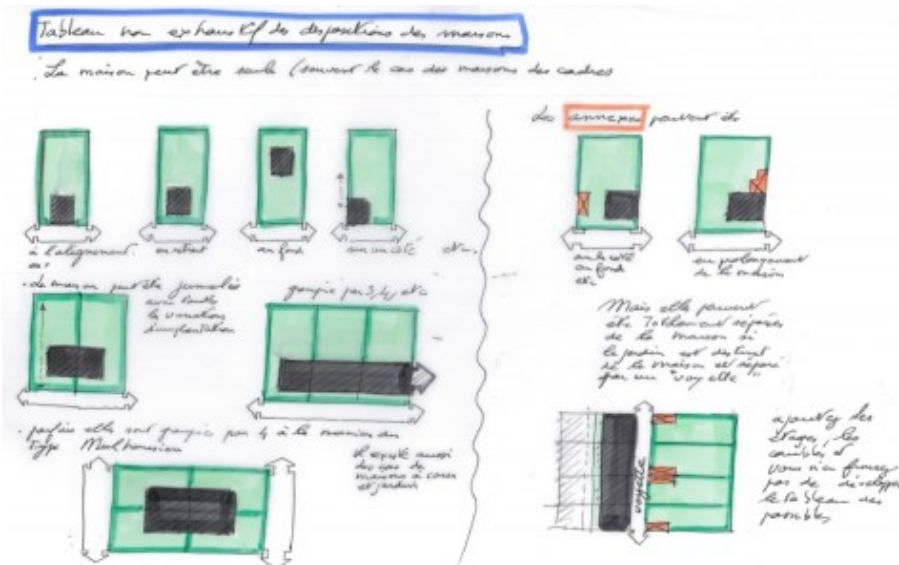 Tableau non exhaustif des dispositions des maisons
. La maison peut être seule (souvent le cas des maisons des cadres
à l'alignement.
ou
en retrait
au fond
sur un coté
etc.
. La maison peut être jumelée
avec toutes
les variations
d'implantation
groupée par 3, 4, etc
. parfois elles sont groupées par 4 à la manière du
Type Mulhousien
Il existe aussi
des cas de
maisons à cour
et jardin
Les annexes peuvent être
sur le coté
au fond
etc.
en prolongement
de la maison
Mais elles peuvent
être totalement séparées
de la maison si
le jardin est distinct
de la maison et séparé
par un "voyette"
voyette
ajoutez les
étages, les
combles et
vous n'en finirez
pas de développer
le tableau des
possibles